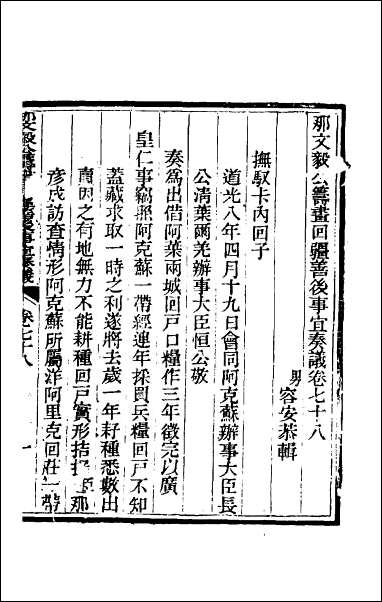 那文毅公籌畫回疆善後事宜奏議卷七十八
男容安恭輯
撫馭卡內回子
道光八年四月十九日會同阿克蘇辦事大臣長
公清葉爾羌辦事大臣恒公敬
奏爲出借阿葉兩城回戶口糧作三年徵完以廣
皇仁事竊照阿克蘇一帶經連年採買兵糧回戶不知
蓋藏求取一時之利遂將去歲一年籽種悉數出
賣因之有地無力不能耕種回戶實形拮据臣那
彥成訪查情形阿克蘇所屬洋阿里克回莊一帶
卷七十八
一